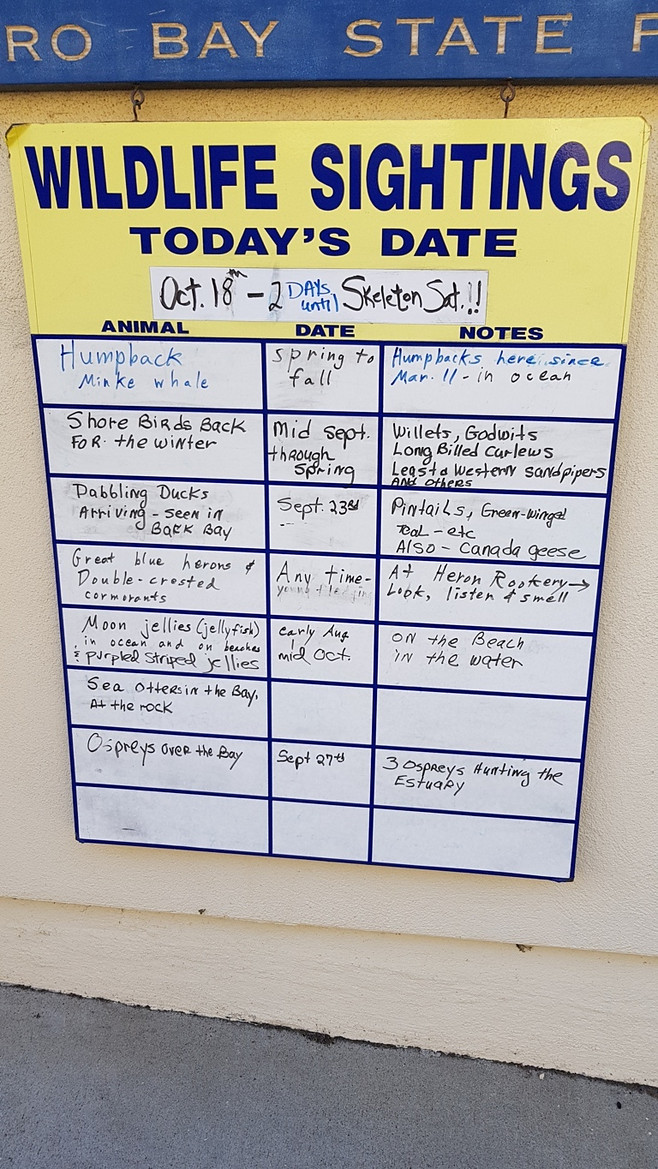 RO BAY STATE P
WILDLIFE SIGHTINGS
TODAY'S DATE
Oct. 18th - 2 DAYS until Skeleton Sat.!!
ANIMAL DATE NOTES
Humpback
Minke whale
Spring to
fall
Humpbacks here since
Mar. 11 - in ocean
Shore Birds Back
FOR the winter
Mid sept.
through
spring
Willets, Godwits
Long Billed Curlews
Least & Western sandpipers
AND others
Dabbling Ducks
Arriving - seen in
Back Bay
Sept. 23rd
Pintails, Green-winged
Teal - etc
Also - Canada geese
Great blue herons &
Double-crested
cormorants
Any time-
At Heron Rookery→
Look, listen & smell
Moon jellies (jellyfish)
in ocean and on beaches
& purpled striped jellies
early Aug
mid Oct.
ON the Beach
in the water
Sea Otters in the Bay,
At the rock
Ospreys over the Bay
Sept 27th
3 Ospreys Hunting the
Estuary